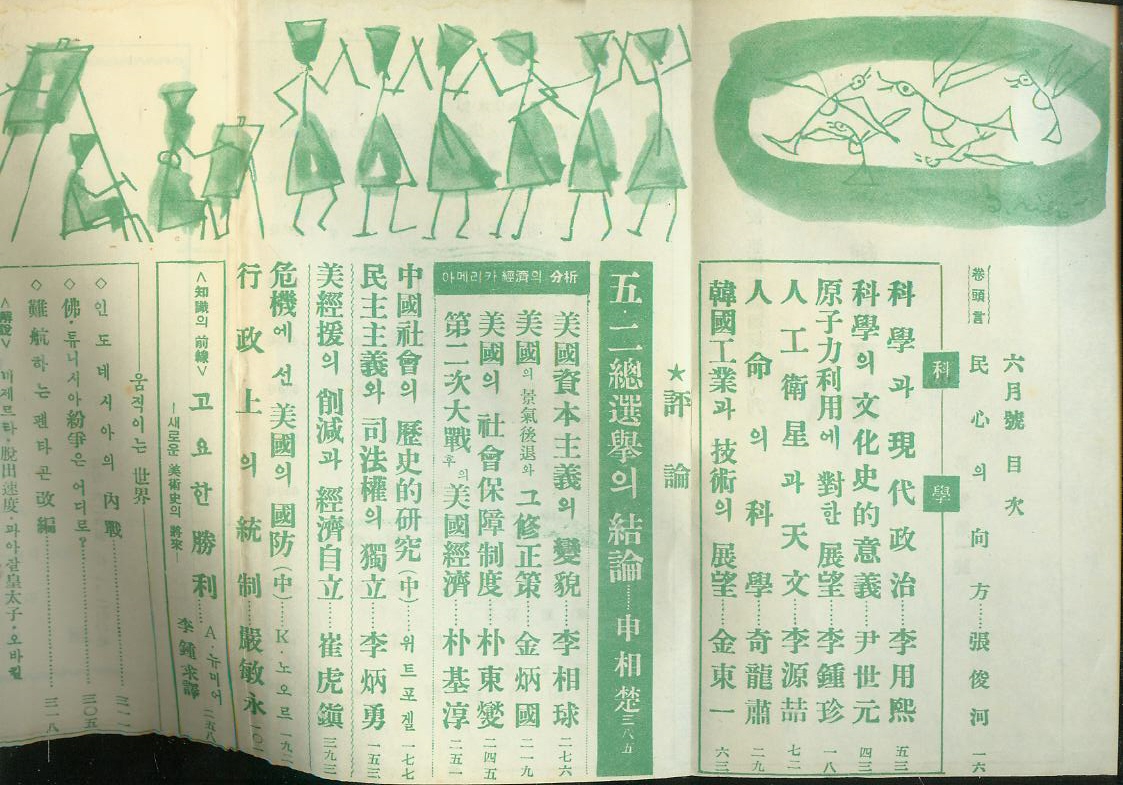 六月號 目次
卷頭言
民心의 向方……張俊河 一六
科學
科學과 現代政治……李用熙 五三
科學의 文化史的意義……尹世元 四三
原子力利用에 對한 展望……李鍾珍 一八
人工衛星과 天文……李源喆 七二
人命의 科學……奇龍肅 二九
韓國工業과 技術의 展望……金東一 六三
★評論
五·二總選擧의 結論……申相楚 三八五
아메리카 經濟의 分析
美國資本主義의 變貌……李相球 二七六
美國의 景氣後退와 그 修正策……金炳國 二一九
美國의 社會保障制度……朴東燮 二四五
第二次大戰後의 美國經濟……朴基淳 二五一
中國社會의 歷史的硏究(中)……위트포겔 一七七
民主主義와 司法權의 獨立……李炳勇 一五三
美經援의 削減과 經濟自立……崔虎鎭 三九三
危機에 선 美國의 國防(中)……K·노오르 一九
行政上의 統制……嚴敏永
<知識의 前線>
고요한 勝利……A·뉴미어 二五八
—새로운 美術史의 將來—
李鍾求譯
움직이는 世界
◇인도네시아의 內戰
◇佛·튜니시아紛爭은 어디로? 三〇五
◇難航하는 펜타곤改編 三一八
<解說> 脫出速度·과아잘皇太子·오바킬